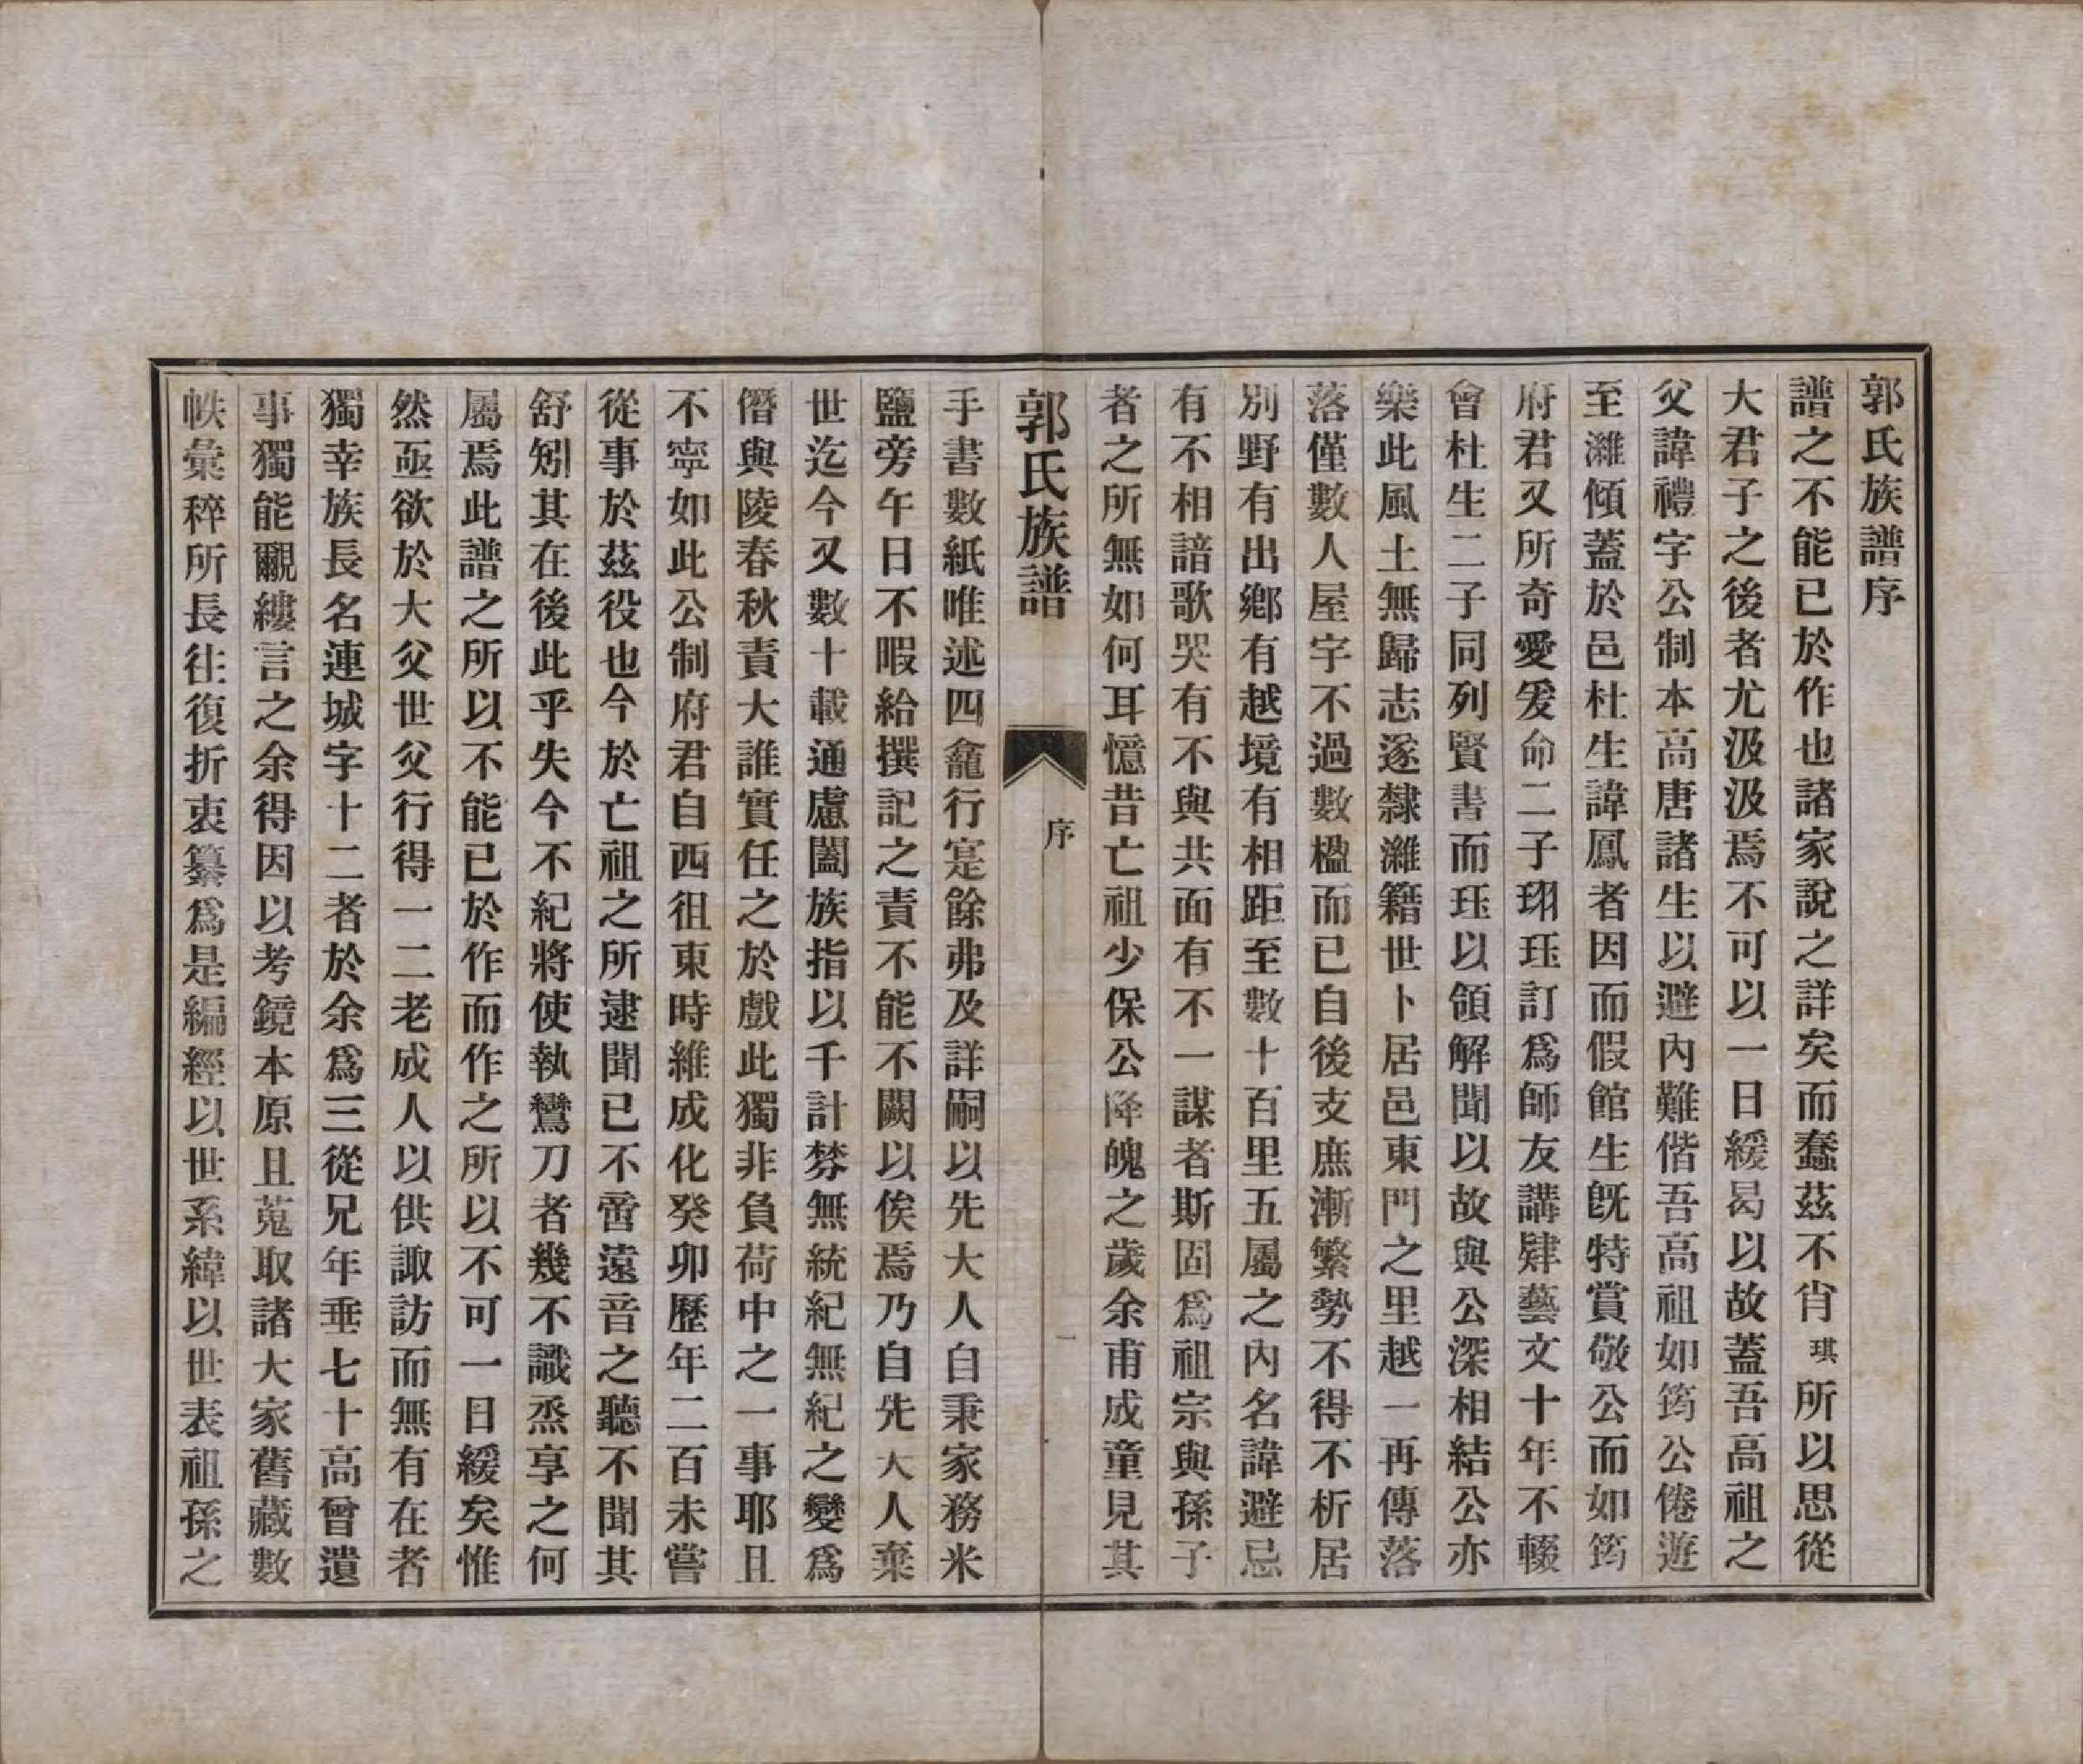 郭氏族譜序
譜之不能已於作也諸家說之詳矣而蠢茲不肖琪所以思從
大君子之後者尤汲汲焉不可以一日緩曷以故蓋吾高祖之
父諱禮字公制本高唐諸生以避內難偕吾高祖如筠公倦遊
至濰傾蓋於邑杜生諱鳳者因而假館生旣特賞敬公而如筠
府君又所奇愛爰命二子珝珏訂爲師友講肄藝文十年不輟
會杜生二子同列賢書而珏以領解聞以故與公深相結公亦
樂此風土無歸志遂隸濰籍世卜居邑東門之里越一再傳落
落僅數人屋字不過數楹而已自後支庶漸繁勢不得不析居
別野有出鄕有越境有相距至數十百里五屬之內名諱避忌
有不相諳歌哭有不與共面有不一謀者斯固爲祖宗與孫子
者之所無如何耳憶昔亡祖少保公降魄之歲余甫成童見其
郭氏族譜 序 一
手書數紙唯述四龕行寔餘弗及詳嗣以先大人白秉家務米
鹽旁午日不暇給撰記之責不能不闕以俟焉乃自先大人棄
世迄今又數十載通慮闔族指以千計棼無統紀無紀之變爲
僭與陵春秋責大誰實任之於戲此獨非負荷中之一事耶且
不寧如此公制府君自西徂東時維成化癸卯歷年二百未嘗
從事於茲役也今於亡祖之所逮聞已不啻遠音之聽不聞其
舒矧其在後此乎失今不紀將使執鸞刀者幾不識烝享之何
屬焉此譜之所以不能已於作而作之所以不可一日緩矣惟
然亟欲於大父世父行得一二老成人以供諏訪而無有在者
獨幸族長名連城字十二者於余爲三從兄年垂七十高曾遺
事獨能覼縷言之余得因以考鏡本原且蒐取諸大家舊藏數
帙彙稡所長往復折衷纂爲是編經以世系緯以世表祖孫之